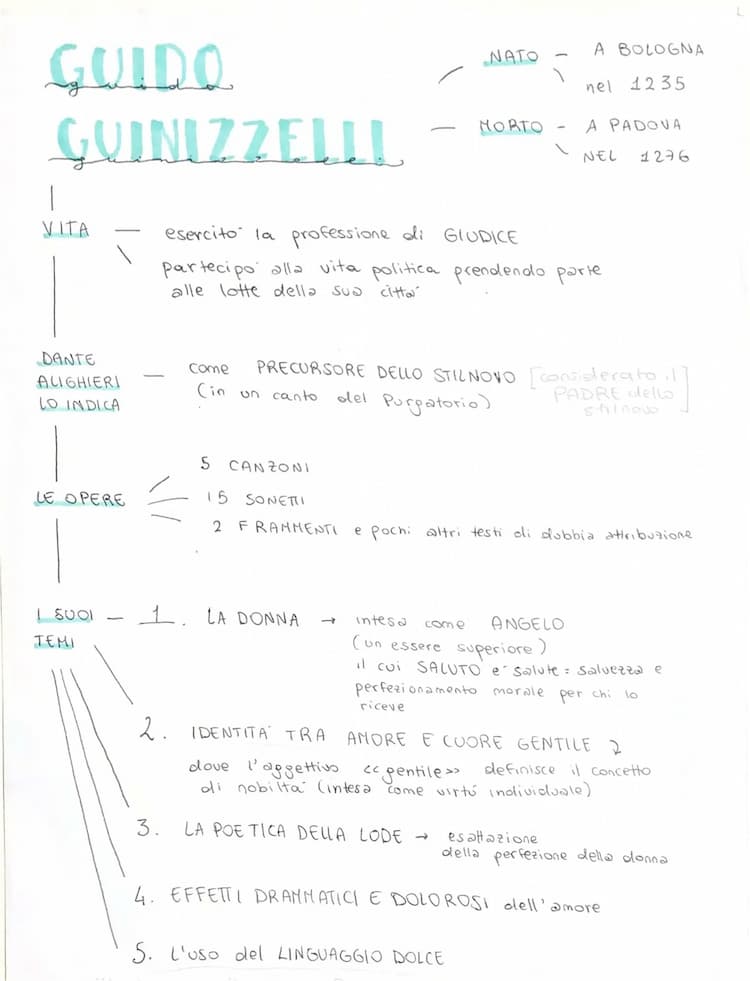 GUIDO
guido
GUINIZZELLI
guinizzelli
NATO – A BOLOGNA
nel 1235
MORTO – A PADOVA
NEL 1276
VITA — esercito' la professione di GIUDICE
partecipo' alla vita politica prendendo parte
alle lotte della sua citta'
DANTE
ALIGHIERI
LO INDICA
come PRECURSORE DELLO STILNOVO [considerato il
(in un canto del Purgatorio) PADRE dello
stilnovo]
LE OPERE
5 CANZONI
15 SONETTI
2 FRAMMENTI e pochi altri testi di dubbia attribuzione
I SUOI
TEMI
1. LA DONNA → intesa come ANGELO
(un essere superiore)
il cui SALUTO e' salute = salvezza e
perfezionamento morale per chi lo
riceve
2. IDENTITA' TRA AMORE E CUORE GENTILE
dove l'aggettivo <<gentile>> definisce il concetto
di nobilta' (intesa come virtú individuale)
3. LA POETICA DELLA LODE → esaltazione
della perfezione della donna
4. EFFETTI DRAMMATICI E DOLOROSI dell'amore
5. L'uso del LINGUAGGIO DOLCE